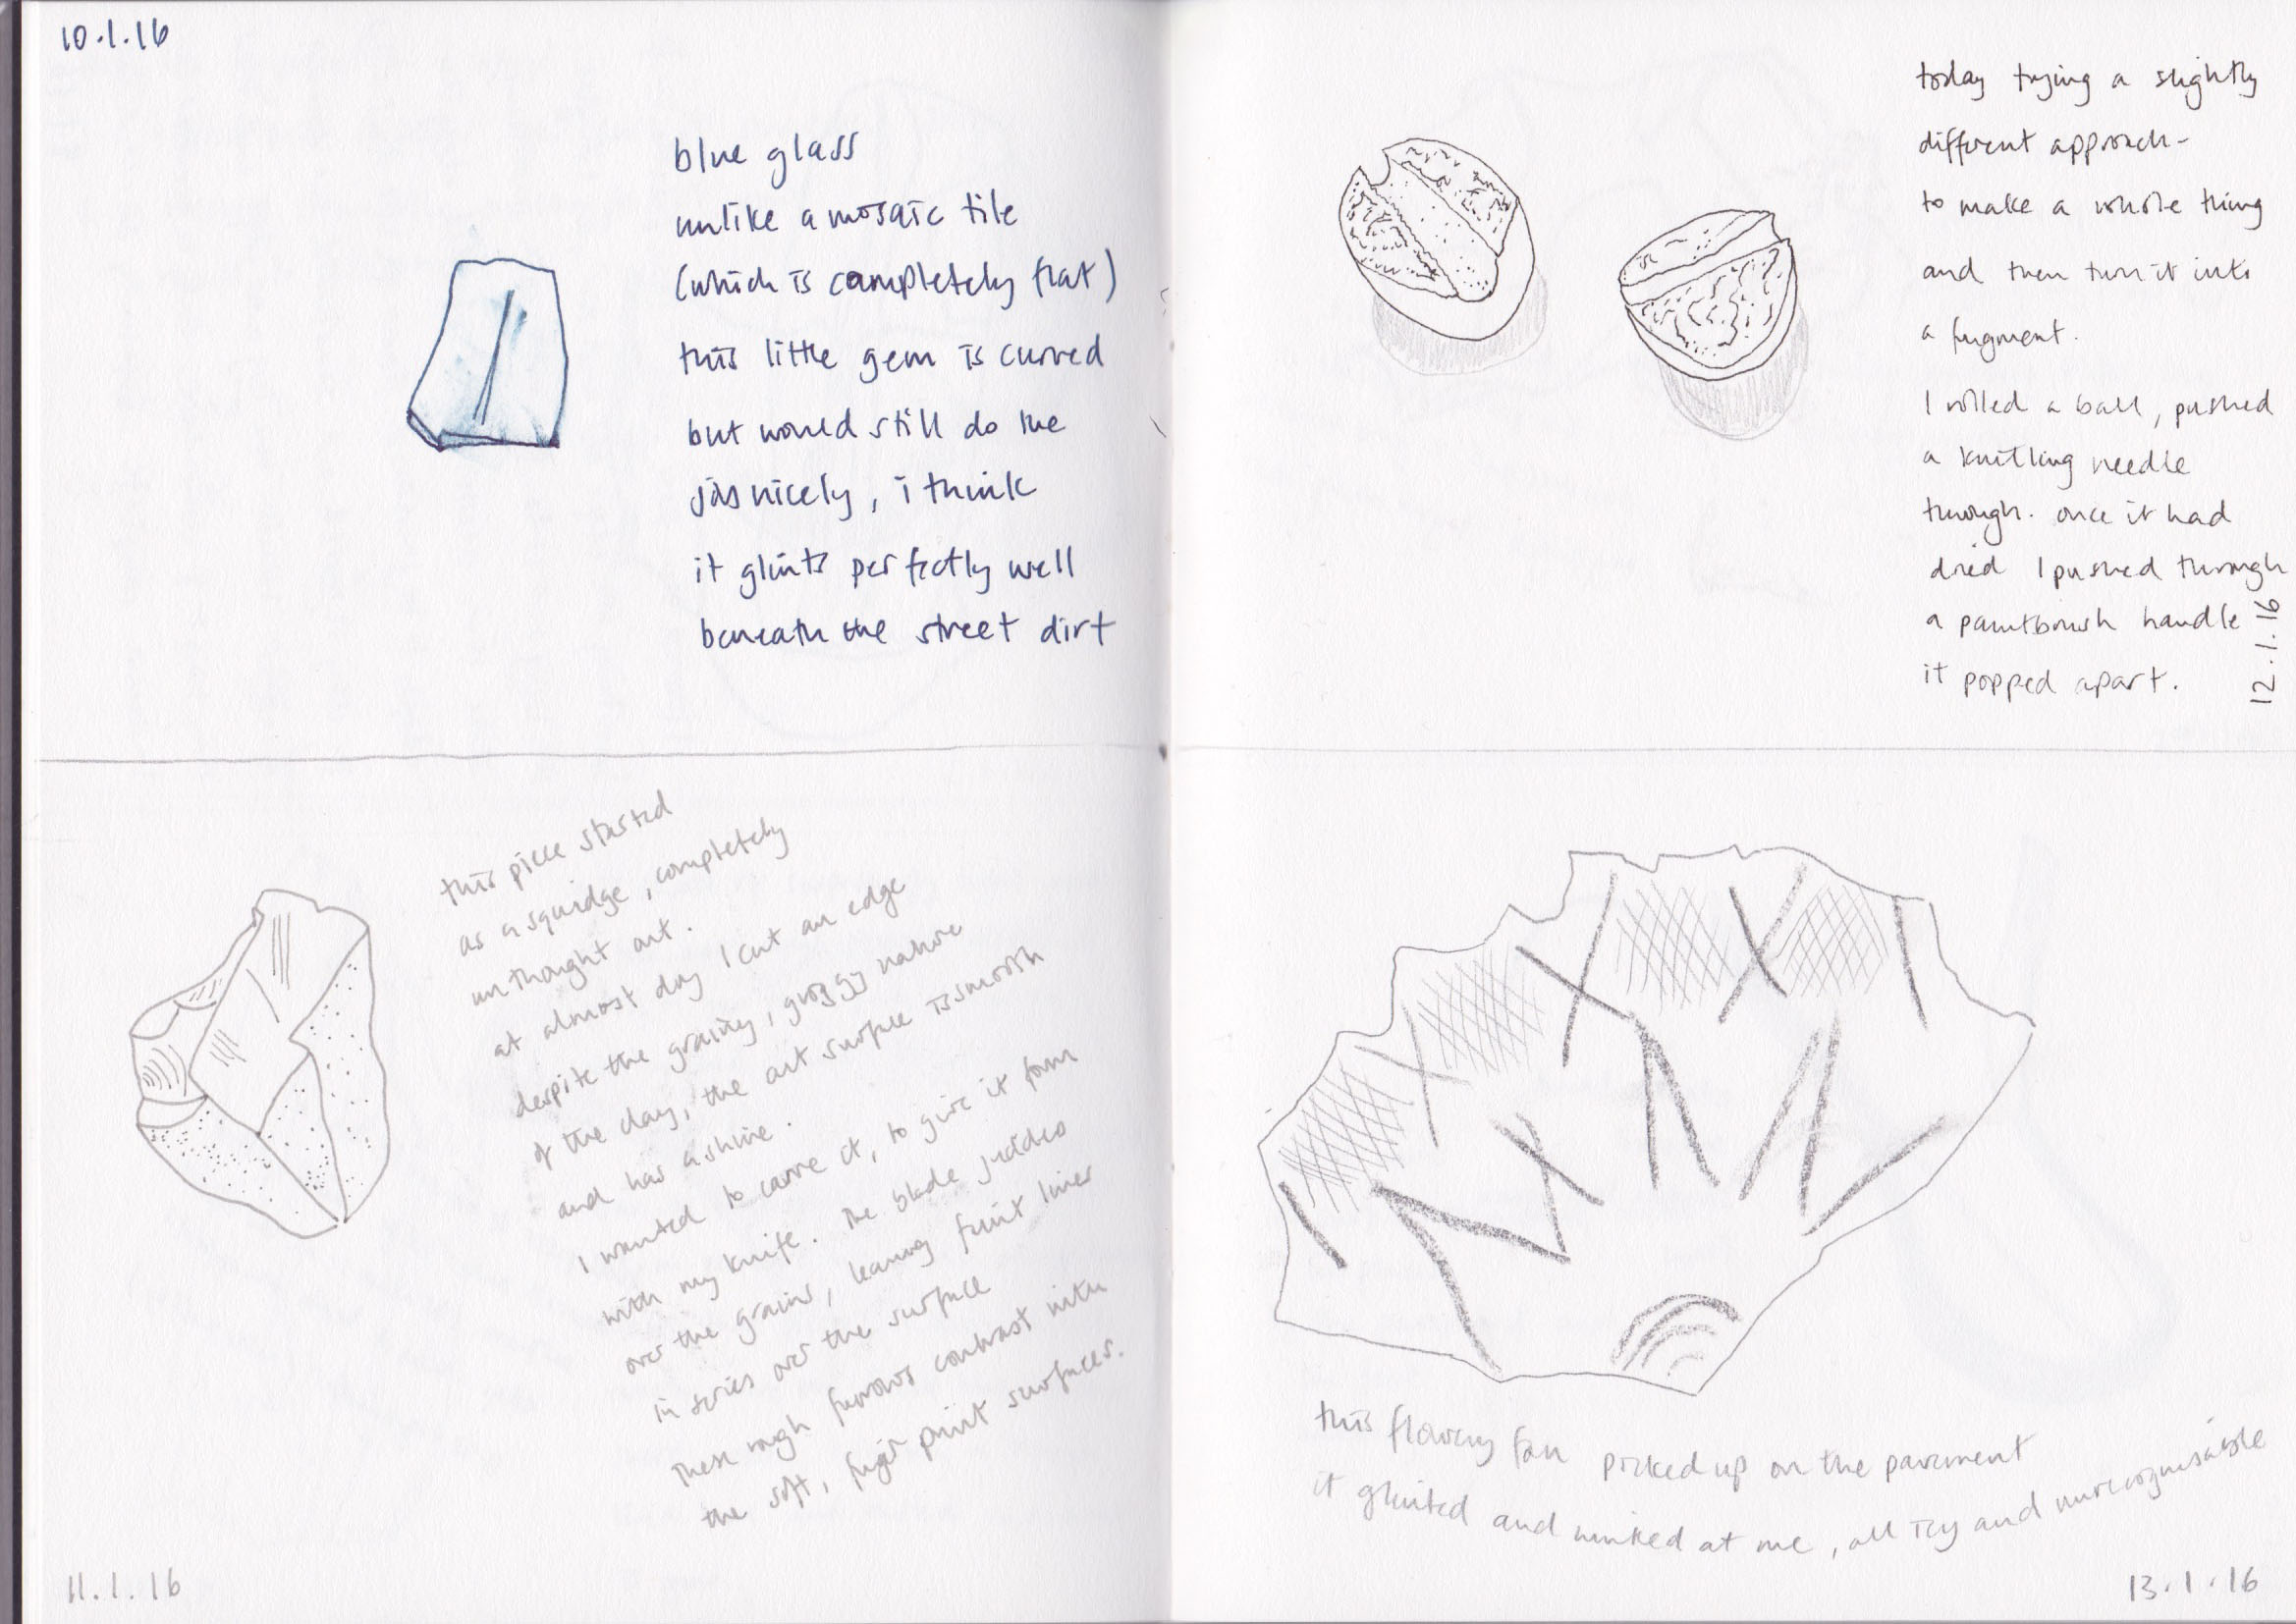 10.1.16
blue glass
unlike a mosaic tile
(which is completely flat)
this little gem is curved
but would still do the
job nicely, i think
it glints perfectly well
beneath the street dirt
this piece started
as a squidge, completely
unthought out.
at almost dry I cut an edge
despite the grainy, groggy nature
of the clay, the cut surface is smooth
and has a shine.
I wanted to carve it, to give it form
with my knife. The blade judders
over the grains, leaving faint lines
in series over the surface
These rough furrows contrast with
the soft, finger print surfaces.
11.1.16
today trying a slightly
different approach-
to make a whole thing
and then turn it into
a fragment.
I rolled a ball, pushed
a knitting needle
through. once it had
dried I pushed through
a paintbrush handle
it popped apart.
12.1.16
this flowery fan picked up on the pavement
it glinted and winked at me, all icy and unrecognisable
13.1.16